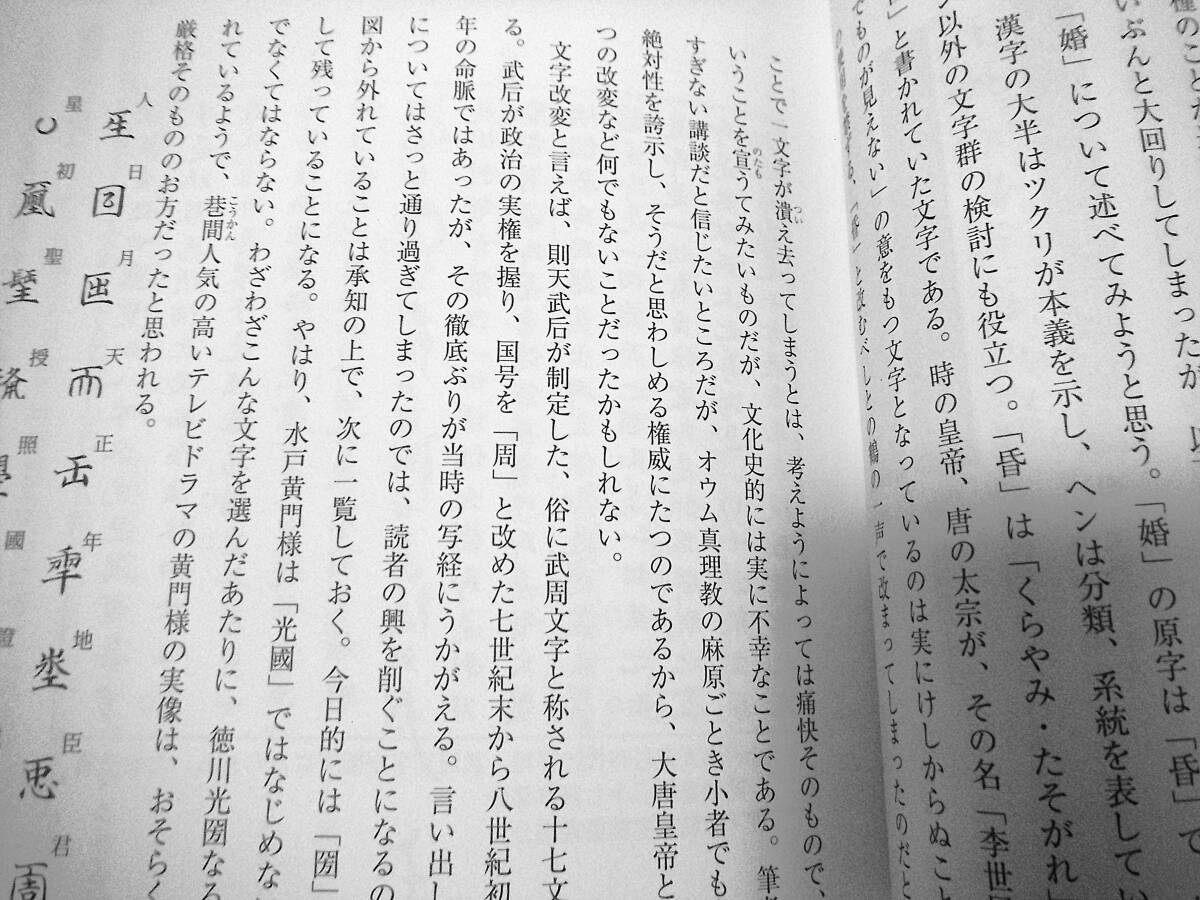 種のことな
いぶんと大回りしてしまったが、以
「婚」について述べてみようと思う。「婚」の原字は「昏」で
漢字の大半はツクリが本義を示し、ヘンは分類、系統を表してい
ン以外の文字群の検討にも役立つ。「昏」は「くらやみ・たそがれ」
」と書かれていた文字である。時の皇帝、唐の太宗が、その名「李世民
でものが見えない」の意をもつ文字となっているのは実にけしからぬこと
「昏」と改むべしとの鶴の一声で改まってしまったのだと
ことで一文字が潰え去ってしまうとは、考えようによっては痛快そのもので、
いうことを宣うてみたいものだが、文化史的には実に不幸なことである。筆者
すぎない講談だと信じたいところだが、オウム真理教の麻原ごとき小者でも
絶対性を誇示し、そうだと思わしめる権威にたつのであるから、大唐皇帝と
つの改変など何でもないことだったかもしれない。
文字改変と言えば、則天武后が制定した、俗に武周文字と称される十七文
る。武后が政治の実権を握り、国号を「周」と改めた七世紀末から八世紀初
年の命脈ではあったが、その徹底ぶりが当時の写経にうかがえる。言い出し
についてはさっと通り過ぎてしまったのでは、読者の興を削ぐことになるの
図から外れていることは承知の上で、次に一覧しておく。今日的には「圀」
して残っていることになる。やはり、水戸黄門様は「光國」ではなじめない
でなくてはならない。わざわざこんな文字を選んだあたりに、徳川光圀なる
れているようで、巷間人気の高いテレビドラマの黄門様の実像は、おそらく
厳格そのもののお方だったと思われる。
人 日 月 天 正 年 地 臣 君
星 初 聖 授 照 國 證